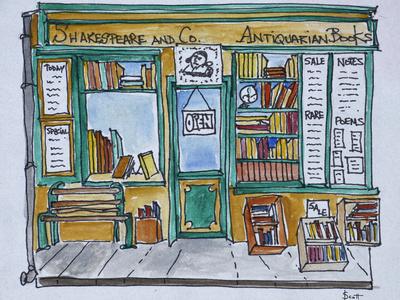 Shakespeare and Co. Antiquarian Books
Today
Special
OPEN
SALE
RARE
NOTES
POEMS
SALE
Scott